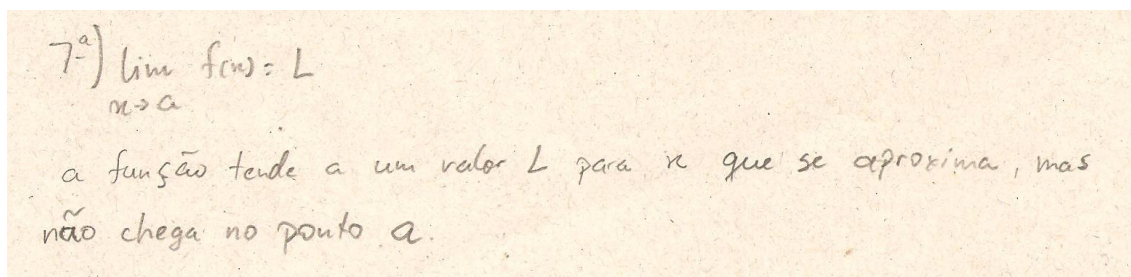 7ª) lim f(x) = L
x→a
a função tende a um valor L para x que se aproxima, mas
não chega no ponto a.